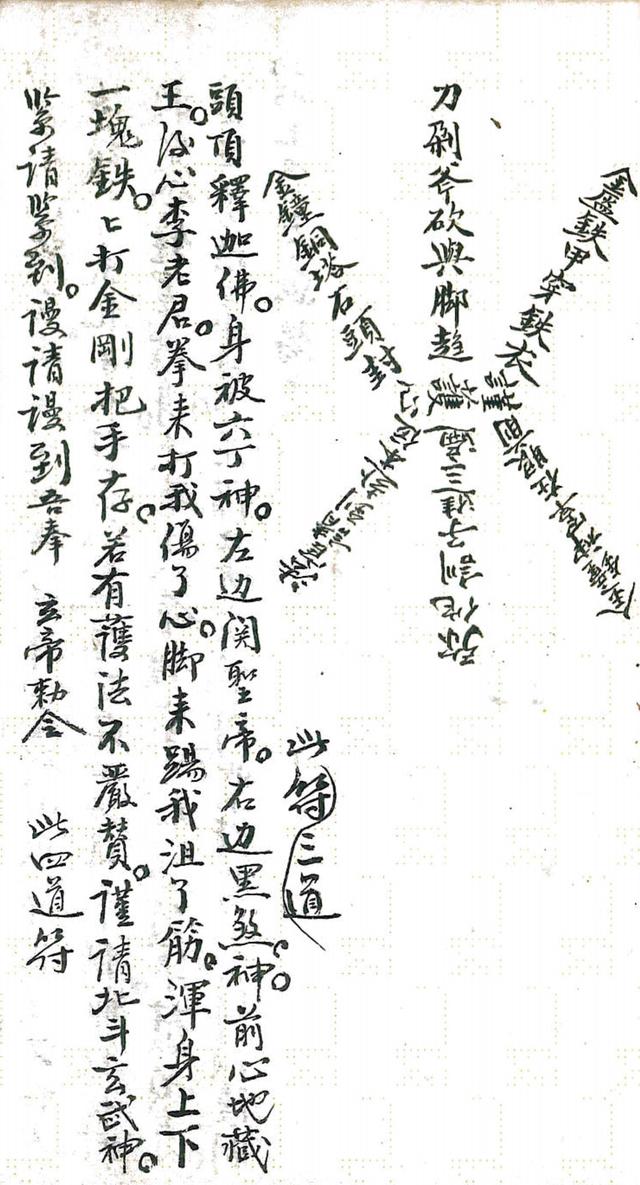 刀剐斧砍與脚趂
金盔鉄甲穿鉄衣
護
金鐘銅塔石頭封
心
此符三道
頭頂釋迦佛。身被六丁神。左边関聖帝。右边黑煞神。前心地藏
王。后心李老君。拳来打我傷了心。脚来踢我沮了筋。渾身上下
一塊鉄。匕打金剛把手存。若有護法不嚴賛。謹請北斗玄武神。
緊請緊到。謾請謾到吾奉 玄帝勅令 此四道符